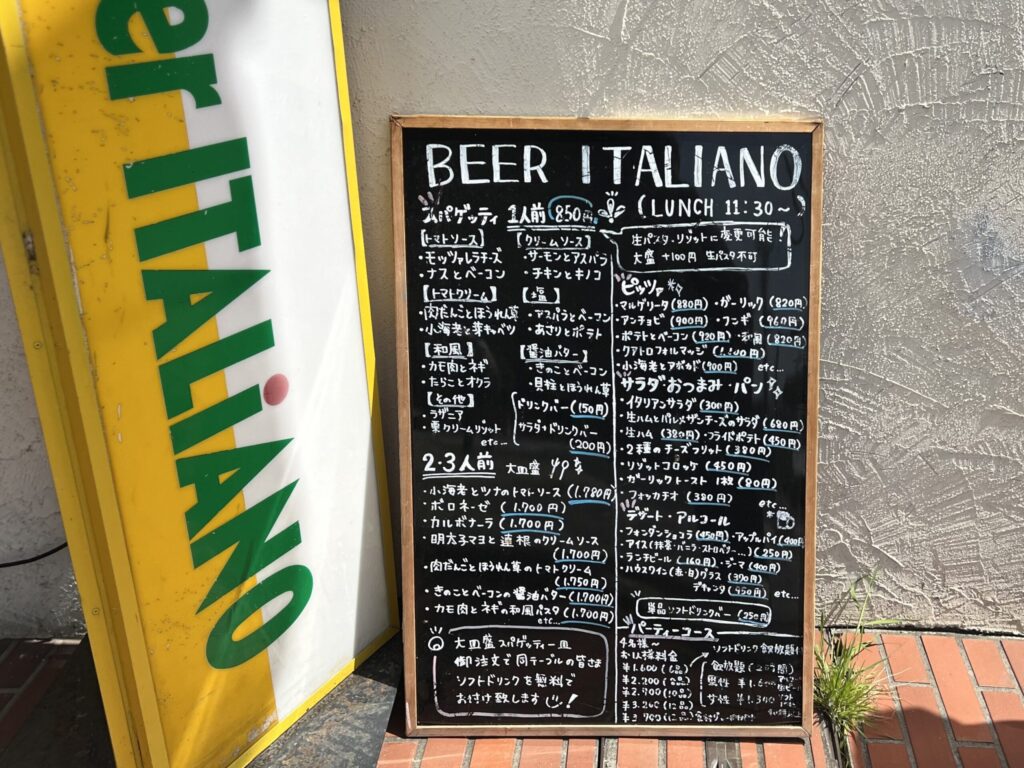 er ITALiANO
BEER ITALIANO
(LUNCH 11:30~)
スパゲッティ 1人前 850円
【トマトソース】
・モッツァレラチーズ
・ナスとベーコン
【クリームソース】
・サーモンとアスパラ
・チキンとキノコ
【トマトクリーム】
・肉だんごとほうれん草
・小海老と芽キャベツ
【塩】
・アスパラとベーコン
・あさりとポテト
【和風】
・カモ肉とネギ
・たらことオクラ
【醤油バター】
・きのことベーコン
・貝柱とほうれん草
【その他】
・ラザニア
・栗クリームリゾット
etc...
ドリンクバー (150円)
サラダ+ドリンクバー
(200円)
2・3人前 大皿盛
・小海老とツナのトマトソース (1.780円)
・ボロネーゼ (1.700円)
・カルボナーラ (1.700円)
・明太子マヨと蓮根のクリームソース
(1.700円)
・肉だんごとほうれん草のトマトクリーム
(1.750円)
・きのことベーコンの醤油バター (1.700円)
・カモ肉とネギの和風パスタ (1.700円)
etc...
大皿盛スパゲッティ一皿
御注文で同テーブルの皆さま
ソフトドリンクを無料で
お付け致します!
生パスタ・リゾットに変更可能!
大盛 +100円 生パスタ不可
ピッツァ
・マルゲリータ (880円) ・ガーリック (820円)
・アンチョビ (900円) ・フンギ (960円)
・ポテトとベーコン (920円) ・和風 (820円)
・クアトロフォルマッジ
・小海老とアボカド (900円) etc...
サラダおつまみ・パン
・イタリアンサラダ (300円)
・生ハムとパルメザンチーズのサラダ (680円)
・生ハム (380円) ・フライドポテト (450円)
・2種のチーズフリット (380円)
・リゾットコロッケ (450円)
・ガーリックトースト 1枚 (80円)
・フォッカチオ (380円)
etc...
デザート・アルコール
・フォンダンショコラ (450円) ・アップルパイ (400円
・アイス (抹茶・バニラ・ストロベリー...) (250円)
・ランチビール (160円) ・ジーマ (400円)
・ハウスワイン (赤・白) グラス (390円)
デキャンタ (950円) etc...
単品ソフトドリンクバー (250円)
パーティーコース
4名様~
お1人様料金
¥1.600 (6品)
¥2.200
¥2.700 (10品)
¥3.200 (12品)
ソフトドリンク飲放題付
飲放題 (2時間)
男性
女性